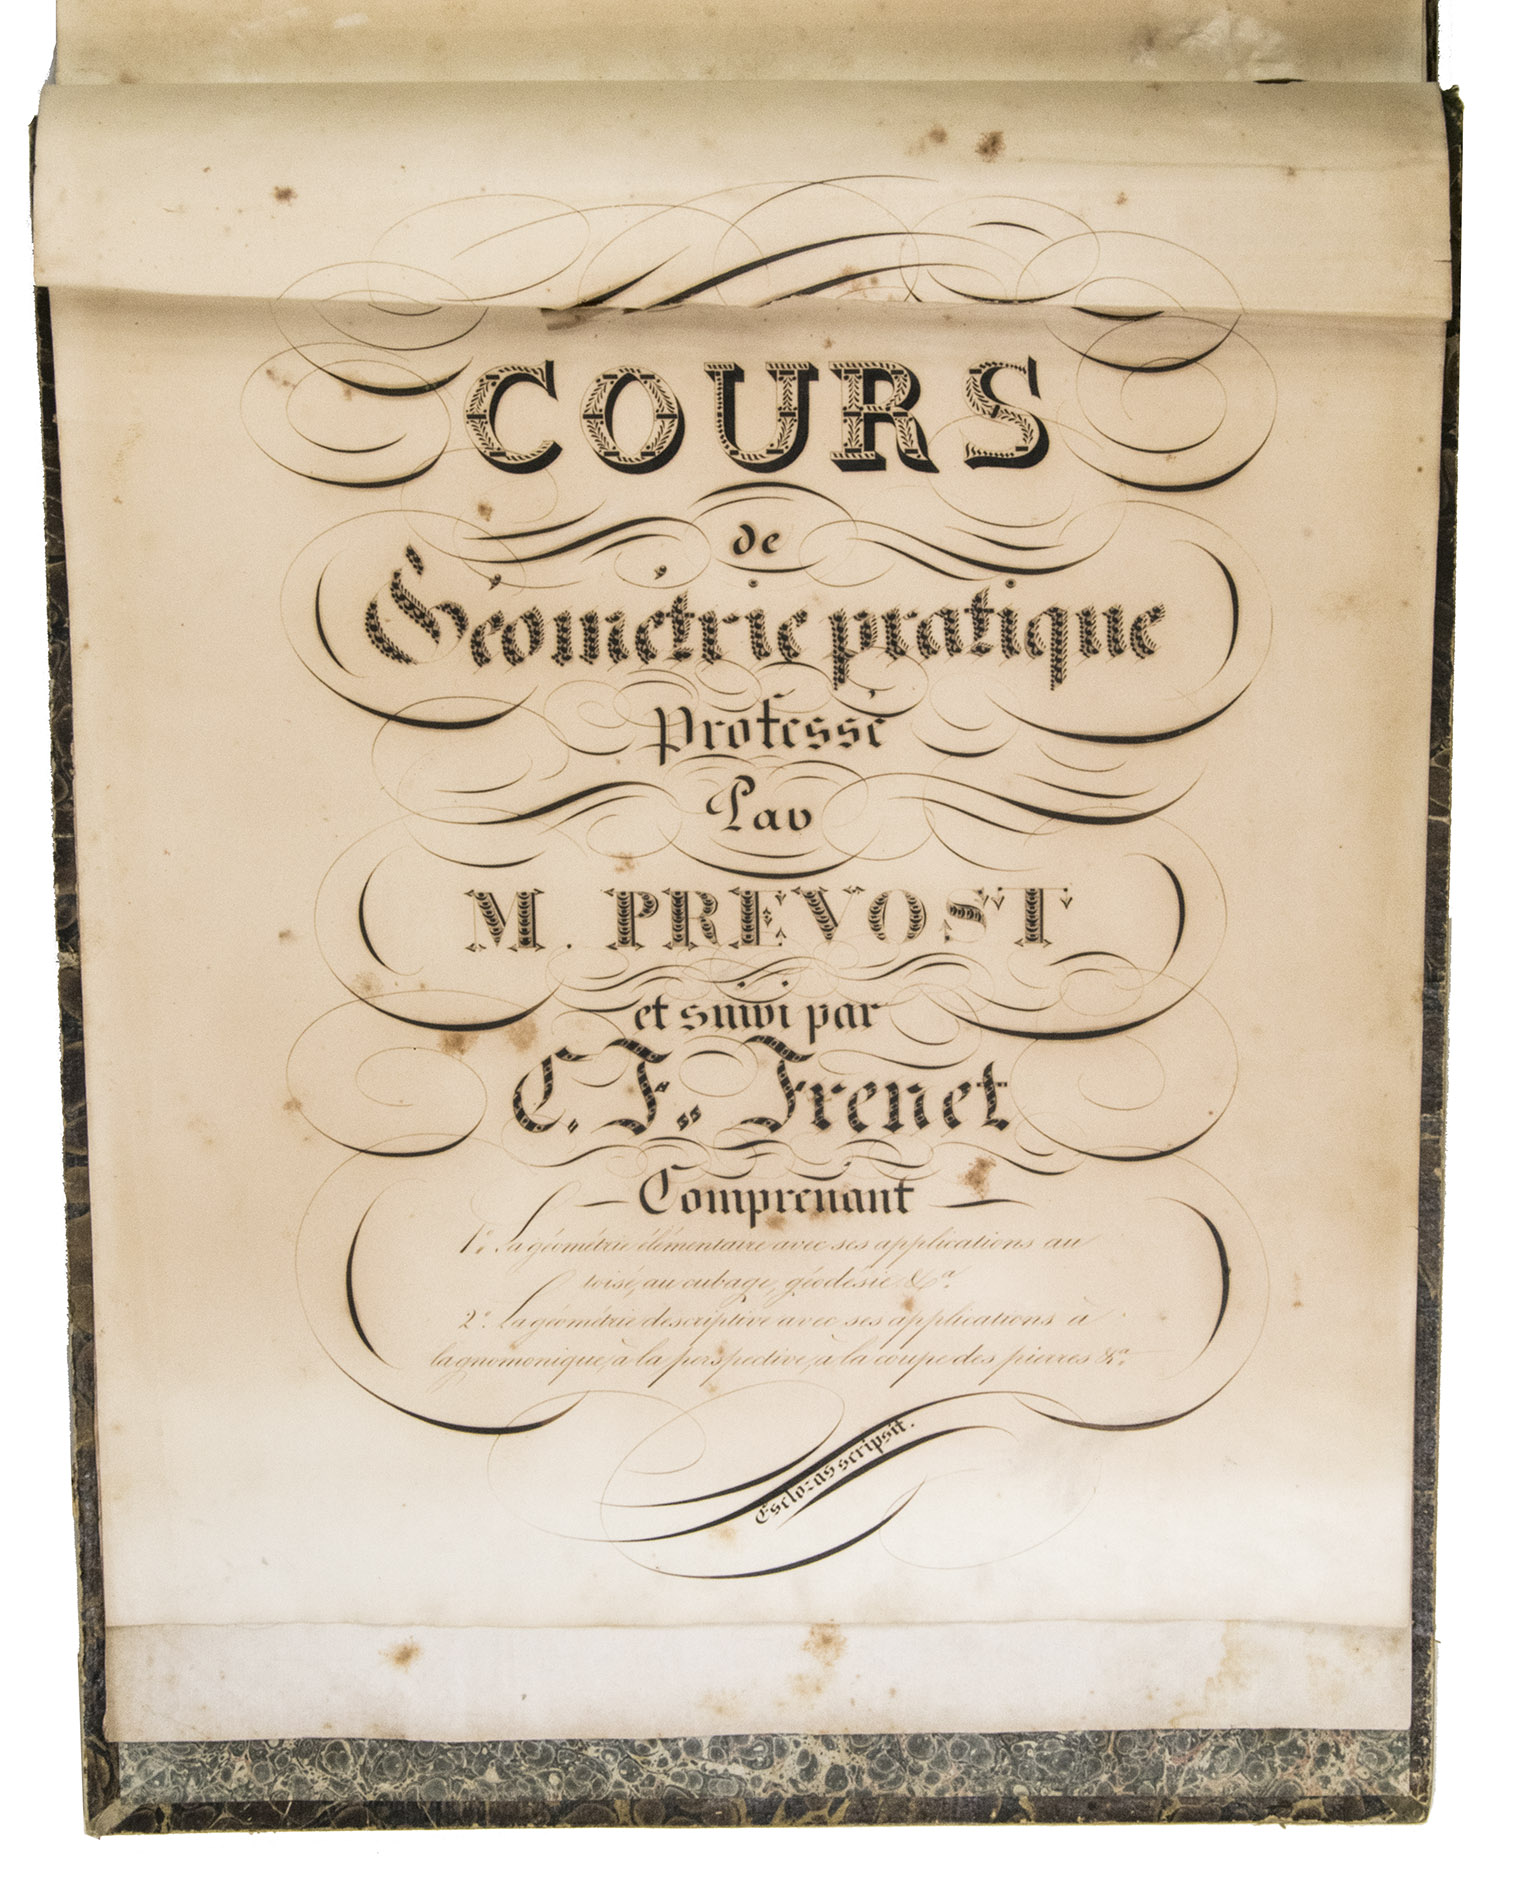 COURS
de
Géométrie pratique
Professé
Par
M. PREVOST
et suivi par
C. F. Frenet
Comprenant
1.° La géométrie élémentaire avec ses applications au
toisé, au cubage, géodésie &.a
2.° La géométrie descriptive avec ses applications à
la gnomonique, à la perspective, à la coupe des pierres &.a
Esclozas scripsit.